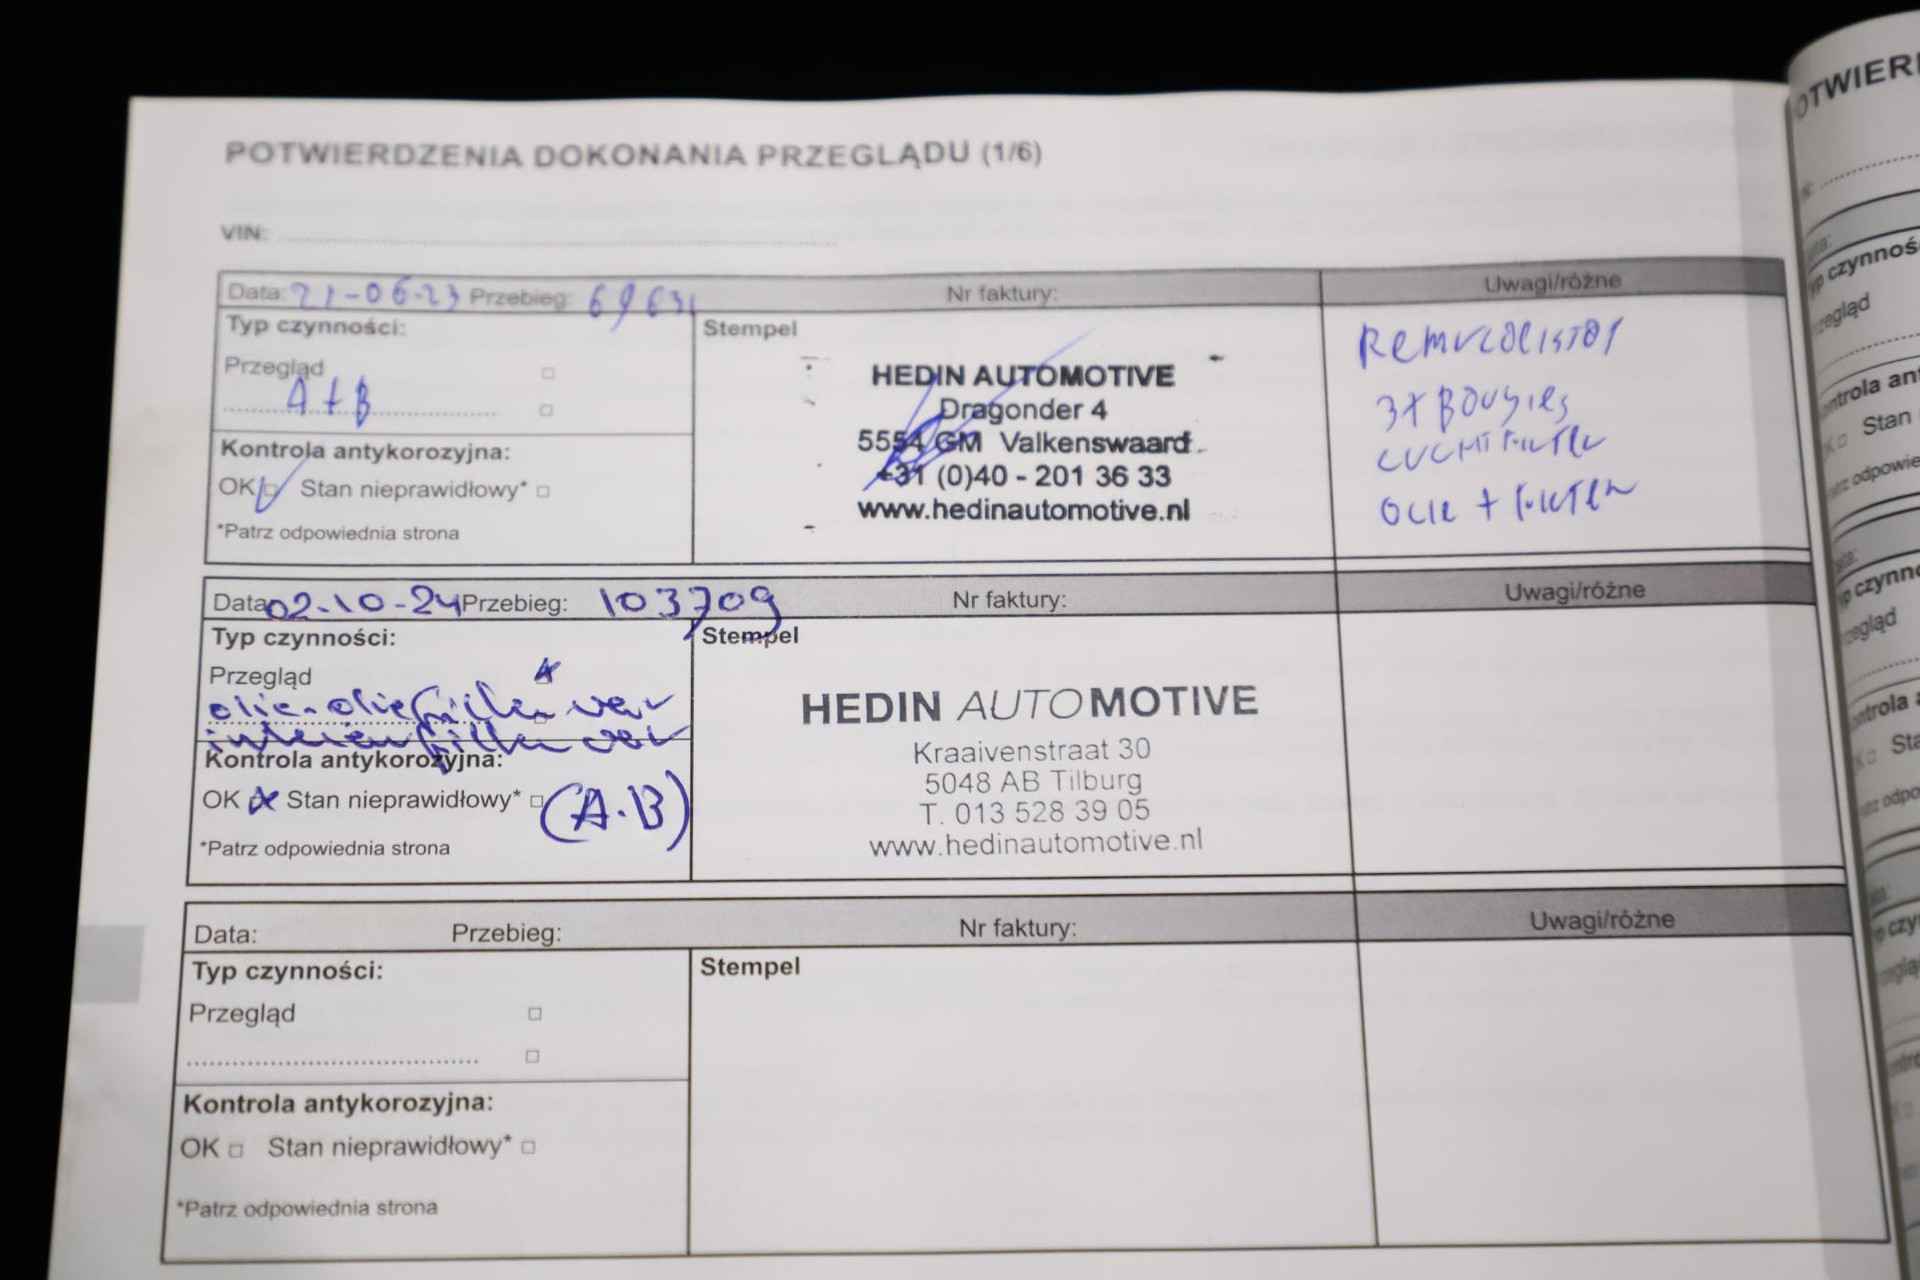 POTWIERDZENIA DOKONANIA PRZEGLĄDU (1/6)
VIN:
Data: 21-06-23 Przebieg: 69631 Nr faktury: Uwagi/różne
Typ czynności:
Przegląd
A+B
Kontrola antykorozyjna:
OK Stan nieprawidłowy*
*Patrz odpowiednia strona
Stempel
HEDIN AUTOMOTIVE
Dragonder 4
5554 GM Valkenswaard
+31 (0)40 - 201 36 33
www.hedinautomotive.nl
Remvloeistof
3x Bougies
Luchtfilter
Olie + filter
Data: 02-10-24 Przebieg: 103709 Nr faktury: Uwagi/różne
Typ czynności:
Przegląd
olie-oliefilter ver
interieurfilter ver
Kontrola antykorozyjna:
OK Stan nieprawidłowy* (A.B)
*Patrz odpowiednia strona
Stempel
HEDIN AUTOMOTIVE
Kraaivenstraat 30
5048 AB Tilburg
T. 013 528 39 05
www.hedinautomotive.nl
Data: Przebieg: Nr faktury: Uwagi/różne
Typ czynności:
Przegląd
Kontrola antykorozyjna:
OK Stan nieprawidłowy*
*Patrz odpowiednia strona
Stempel